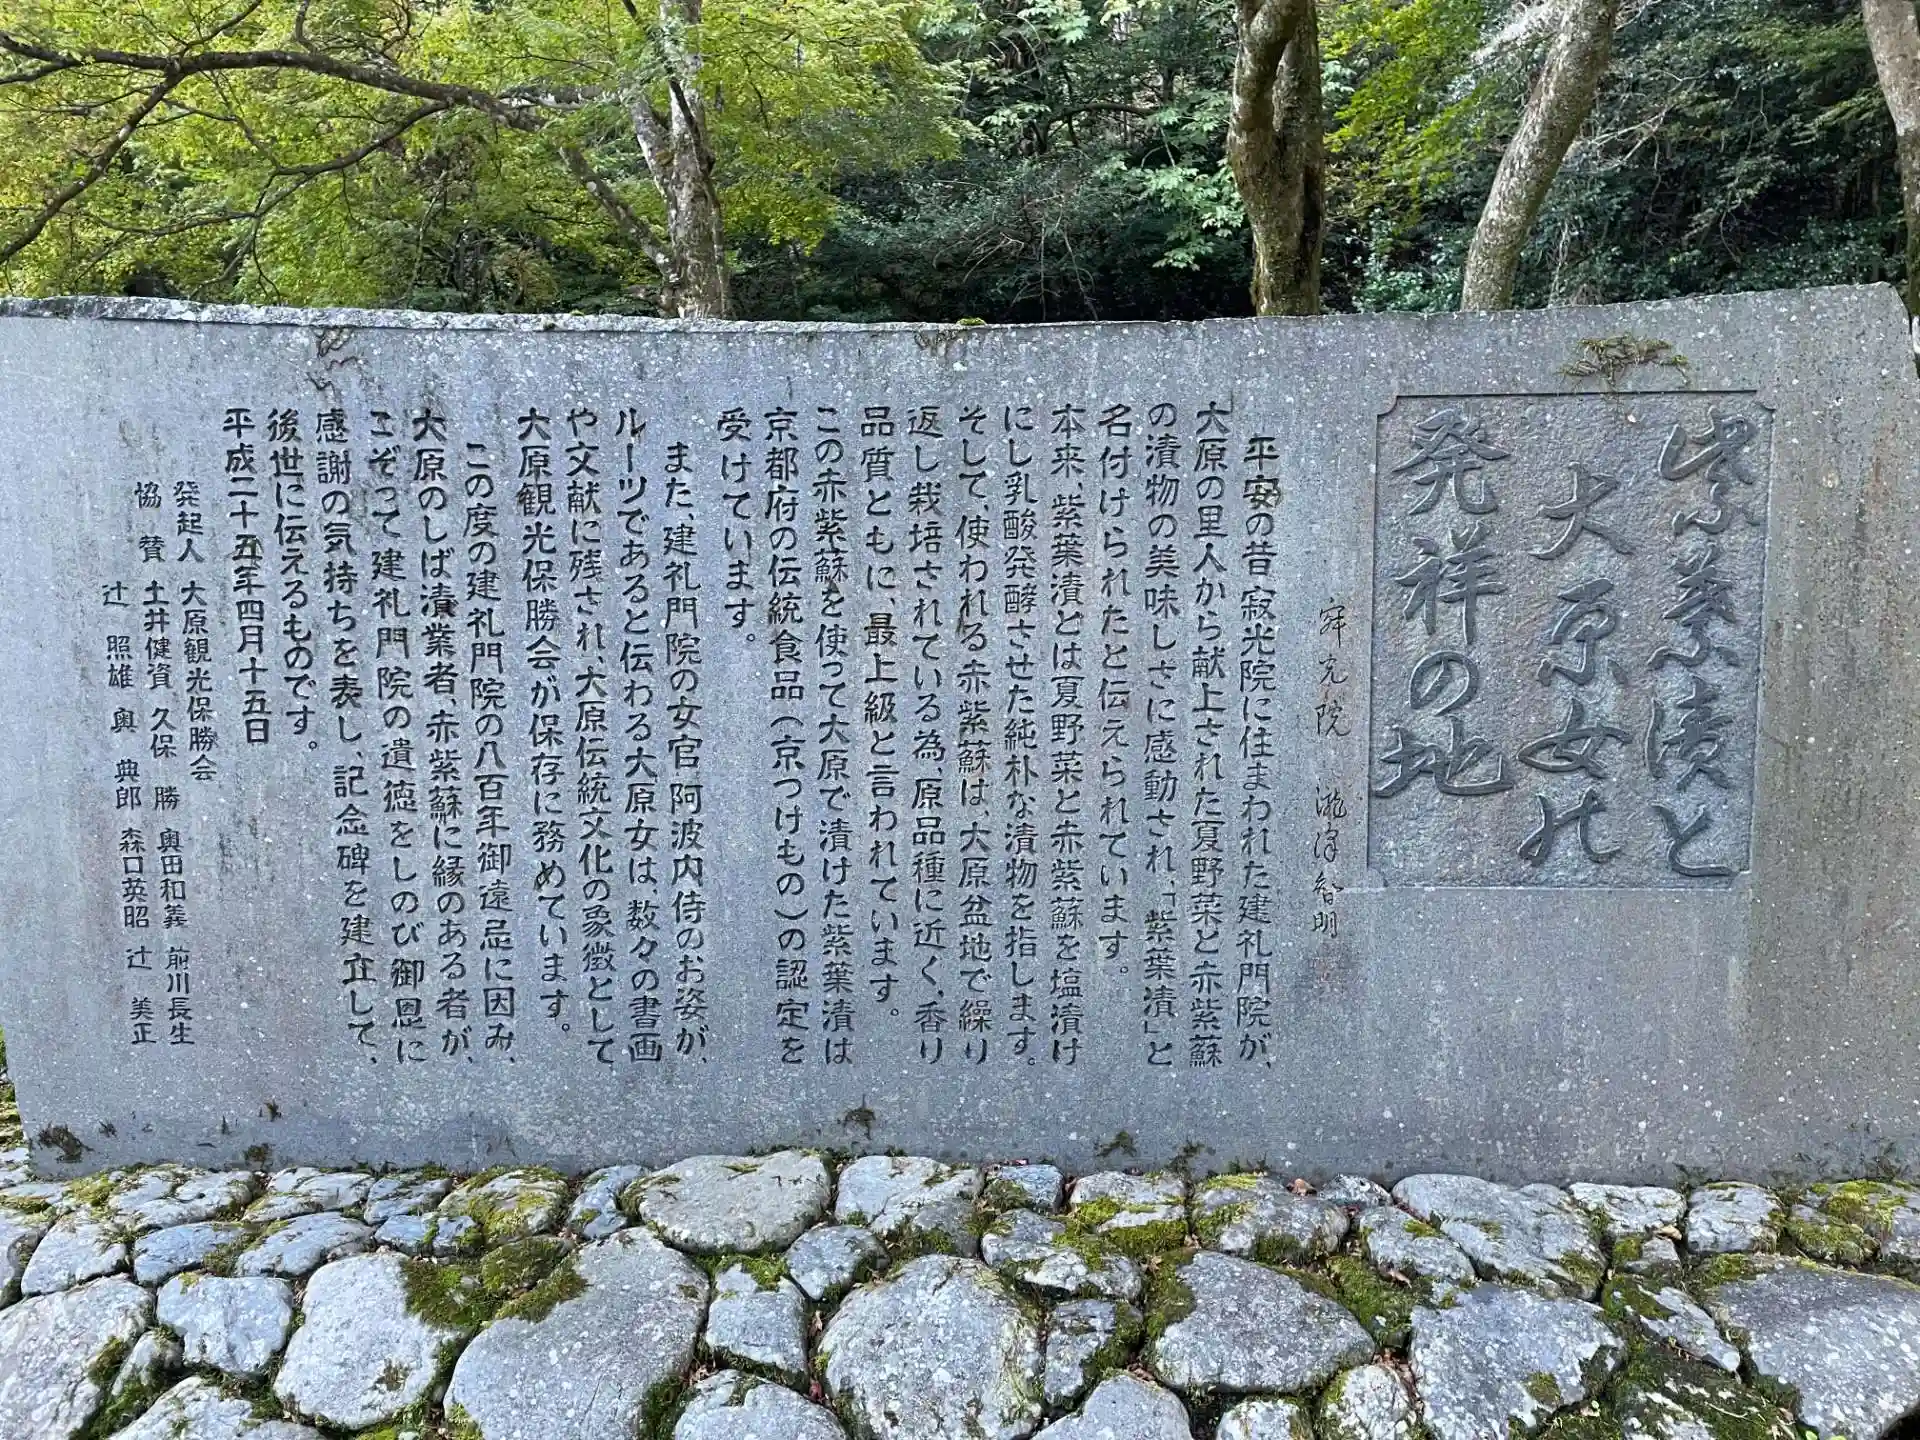 紫葉漬と
大原女の
発祥の地
寂光院 瀧澤智明
平安の昔寂光院に住まわれた建礼門院が、
大原の里人から献上された夏野菜と赤紫蘇
の漬物の美味しさに感動され、「紫葉漬」と
名付けられたと伝えられています。
本来、紫葉漬とは夏野菜と赤紫蘇を塩漬け
にし乳酸発酵させた純朴な漬物を指します。
そして、使われる赤紫蘇は、大原盆地で繰り
返し栽培されている為、原品種に近く、香り
品質ともに、最上級と言われています。
この赤紫蘇を使って大原で漬けた紫葉漬は
京都府の伝統食品(京つけもの)の認定を
受けています。
また、建礼門院の女官阿波内侍のお姿が、
ルーツであると伝わる大原女は、数々の書画
や文献に残され、大原伝統文化の象徴として
大原観光保勝会が保存に務めています。
この度の建礼門院の八百年御遠忌に因み、
大原のしば漬業者、赤紫蘇に縁のある者が、
こぞって建礼門院の遺徳をしのび御恩に
感謝の気持ちを表し、記念碑を建立して、
後世に伝えるものです。
平成二十五年四月十五日
発起人 大原観光保勝会
協賛 土井健資 久保勝 奥田和義 前川長生
辻照雄 奥典郎 森口英昭 辻美正